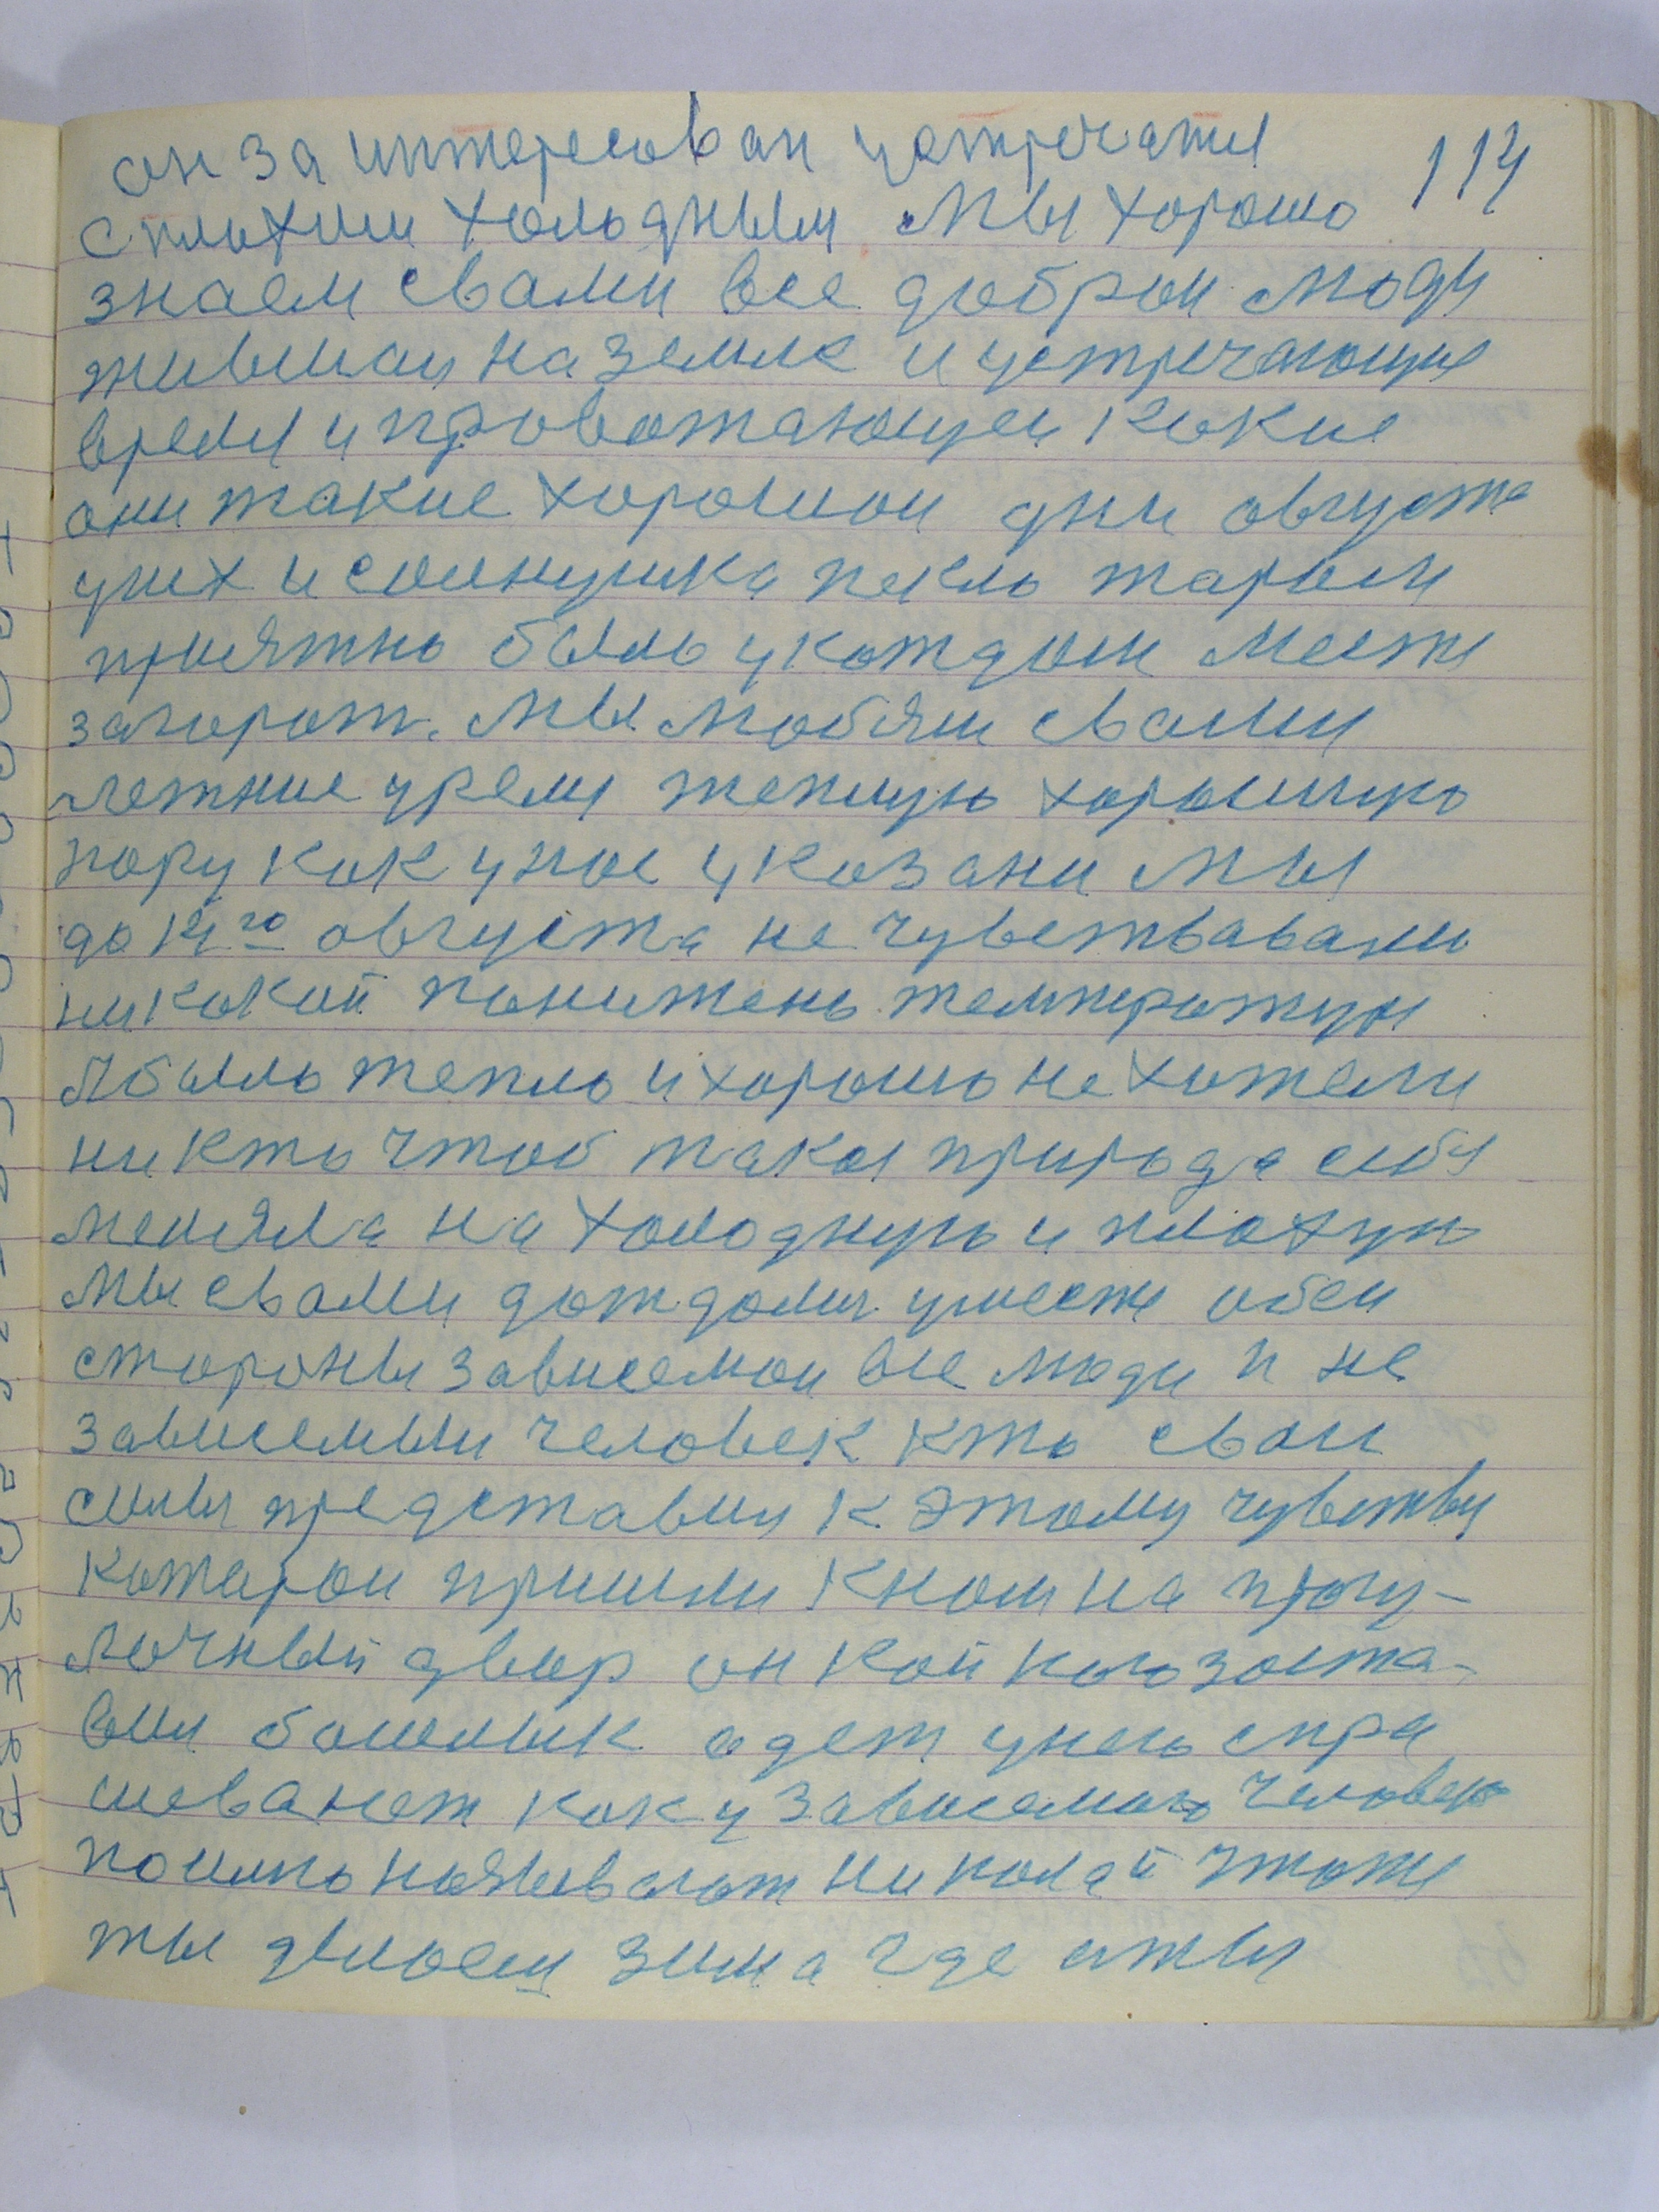 он за интересован устречатся 114
с плохим холодным Мы хорошо
знаем свами все доброи люди
жившаи на земле и устречающие
время и провожающеи какие
они такие хорошои дни августа
уних и солнушка пекло жаром
приятно было укаждом месте
загорат. Мы любям свами
летние уремя теплую хорошую
пору как унас указани мы
до 14го августа не чувствавали
никакой понижень температуры
Абыло тепло и хорошо не хотели
никто чтоб такая природа себя
меняла на холодную и плохую
Мы свами дождоми уместе обеи
стороны зависемои все люди и не
зависемыи человек кто сваи
силы представил к этому чувству
котараи пришли кнам на прогу-
лочный двор он кой кого заста-
вил башмик одет унего спра
шевают как у зависемого человека
поимю называют николай чтоже
ты делаеш зима где аты